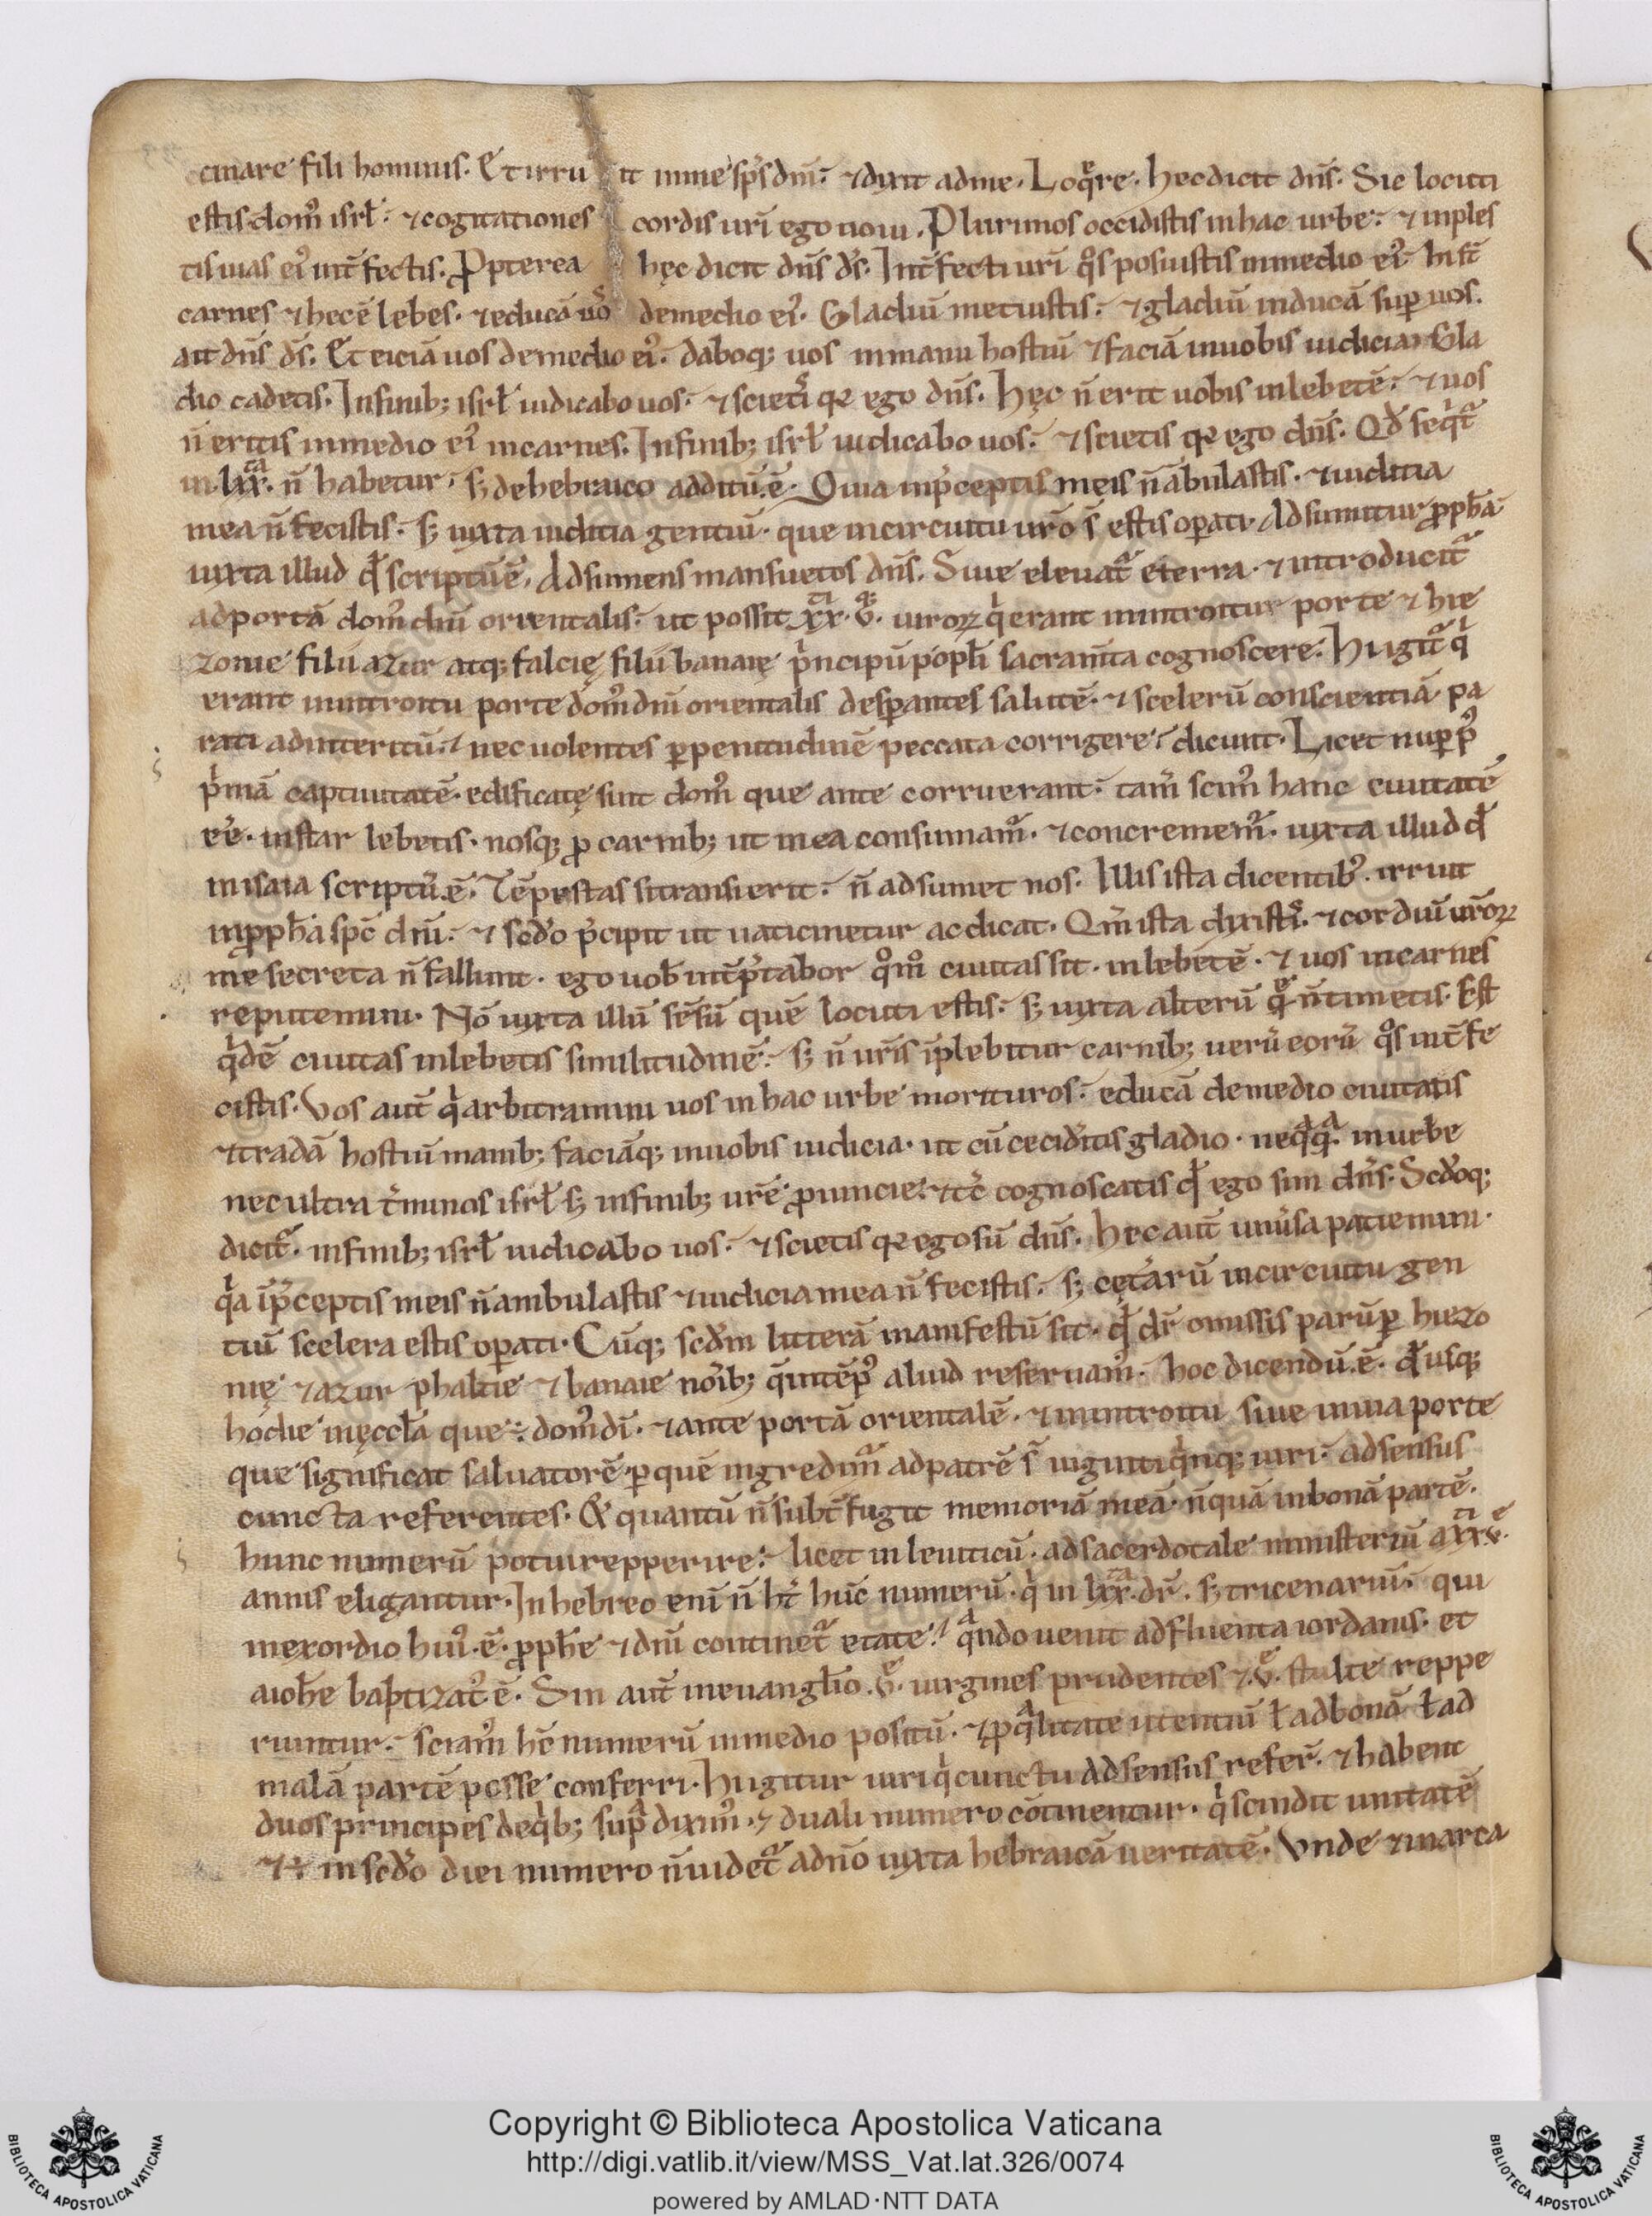 cinare fili hominis. Et irru it in me sp̄s dn̄i. ⁊ dixit ad me. Loq̄re. hec dicit dn̄s. Sic locuti
estis domꝰ isrl̄. ⁊ cogitationes cordis ur̄i ego noui. Plurimos occidistis in hac urbe. ⁊ inples
tis uias eiꝰ int̄fectis. Ꝓpterea hęc dicit dn̄s ds̄. Int̄fecti ur̄i q̊s posuistis in medio eiꝰ hi st̄
carnes ⁊ hec ē lebes. ⁊ educā uos de medio eiꝰ. Gladiū metuistis. ⁊ gladiū inducā suꝑ uos.
ait dn̄s ds̄. Et eiciā uos de medio eiꝰ. daboq; uos in manu hostiū ⁊ faciā in uobis iudicia. Gla
dio cadetis. In finib; isrl̄ iudicabo uos. ⁊ scietis qꝛ ego dn̄s. Hęc n̄ erit uobis in lebetē. ⁊ uos
n̄ eritis in medio eiꝰ in carnes. In finib; isrl̄ iudicabo uos. ⁊ scietis qꝛ ego dn̄s. Qd̄ seqͥt᷑
in lxx. n̄ habetur. s; de hebraico additū ē. Quia in p̄ceptis meis n̄ ābulastis. ⁊ iuditia
mea n̄ fecistis. s; iuxta iuditia gentiū. que in circuitu ur̄o s̄ estis oꝑati. Adsumitur ꝓph̄a
iuxta illud qd̄ scriptū ē. Adsumens mansuetos dn̄s. Siue eleuat᷑ e terra. ⁊ introducit᷑
ad portā domꝰ dn̄i orientalis. ut possit xx. v. uiroꝝ qͥ erant in introitu porte ⁊ hie
zonie filii azur atq; falcię filii banaię pͥncipū popl̄i sacram̄ta cognoscere. Hi igit᷑ qͥ
erant in introitu porte domꝰ dn̄i orientalis desꝑantes salutē. ⁊ scelerū conscientiā pa
rati ad interitū. ⁊ nec uolentes ꝑ penitudinē peccata corrigere. dicunt. Licet nuꝑ pꝰ
pͥmā captiuitatē. edificatę sint domꝰ que ante corruerant. tam̄ scimꝰ hanc ciuitatē
eē. instar lebetis. nosq; ꝓ carnib; ut in ea consumam᷑. ⁊ concremem᷑. iuxta illud qd̄
in isaia scriptū ē. Tēpestas si transierit. n̄ adsumet nos. Illis ista dicentibꝰ. irruit
in ꝓph̄a spc̄ dn̄i. ⁊ scd̄o p̄cipit ut uaticinetur ac dicat. Qm̄ ista dixistis. ⁊ cordiū ur̄oꝝ
me secreta n̄ fallunt. ego uob̄ int̄p̄tabor q̊m̊ ciuitas sit. in lebetē. ⁊ uos in carnes
reputemini. Nō iuxta illū sēsū quē locuti estis. s; iuxta alterū quē n̄ timetis. Est
qͥdē ciuitas in lebetis similitudinē. s; n̄ ur̄is īplebitur carnib; uerū eorū q̊s int̄fe
cistis. Vos aut̄ qͥ arbitramini uos in hac urbe morituros. educā de medio ciuitatis
⁊ tradā hostiū manib; faciāq; in uobis iudicia. ut cū cecid̄itis gladio. neqͣqͣ. in urbe
nec ultra t̄minos isrl̄ s; in finib; ur̄e ꝓuincie. ⁊ tc̄ cognoscatis qd̄ ego sim dn̄s. Scd̄oq;
dicit᷑. in finib; isrl̄ iudicabo uos. ⁊ scietis qꝛ ego sū dn̄s. Hec aut̄ uniu̓sa patiemini.
qͥa ī p̄ceptis meis n̄ ambulastis ⁊ iudicia mea n̄ fecistis. s; cęt̄arū in circuitu gen
tiū scelera estis oꝑati. Cūq; scd̄m litterā manifestū sit. qd̄ dr̄ omissis parūꝑ hiezo
nię ⁊ azur phaltie ⁊ banaie noīb; q̄ in tēpꝰ aliud reseruamꝰ. hoc dicendū ē. qd̄ usq;
hodie in ęccl̄a que ÷ domꝰ dī. ⁊ ante portā orientalē. ⁊ in introitu siue in uia porte
que significat saluatorē ꝑ quē ingredim᷑ ad patrē s̄ uiginti qͥnq; uiri. ad sensus
cuncta referentes. Et quantū n̄ subt̄fugit memoriā meā. n̄quā in bonā partē.
hunc numerū potui repperire. licet in leuiticū. ad sacerdotale ministeriū a xx.v.
annis eligantur. In hebreo enī n̄ ht̄ hūc numerū. qͥ in lxx. dr̄. s; tricenariū. qui
in exordio huiꝰ ē. ꝓph̄e ⁊ dn̄i continet᷑ etate. qͣndo uenit ad fluenta iordanis. et
a ioh̄e baptizatꝰ ē. Sin aut̄ in euangl̄io. v. uirgines prudentes ⁊ v. stulte reppe
riuntur. sciamꝰ hc̄ numerū in medio positū. ⁊ ꝓ qͣlitate utentiū ł ad bonā ł ad
malā partē posse conferri. Hi igitur uiri qͥ cuncta ad sensus refer̄. ⁊ habent
duos principes de qͥb; supͣ diximꝰ. ⁊ duali numero cōtinentur. qͥ scindit unitatē
⁊ ÷ in scd̄o diei numero n̄ uidet᷑ a dn̄o iuxta hebraicā ueritatē. Vnde ⁊ in arca
Copyright © Biblioteca Apostolica Vaticana
http://digi.vatlib.it/view/MSS_Vat.lat.326/0074
powered by AMLAD·NTT DATA
BIBLIOTECA APOSTOLICA VATICANA
BIBLIOTECA APOSTOLICA VATICANA